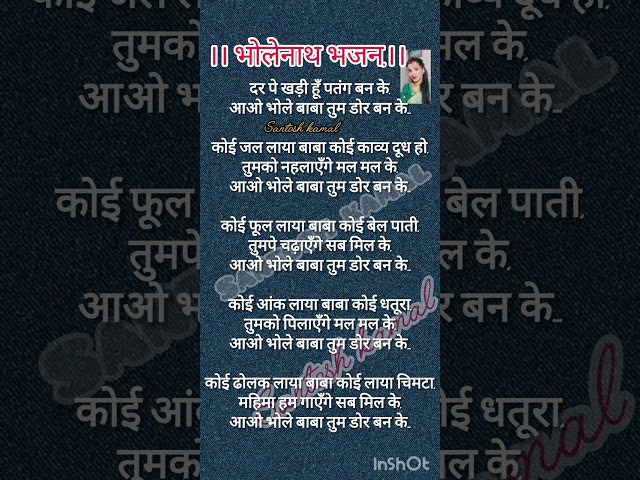 ।। भोलेनाथ भजन ।।
दर पे खड़ी हूँ पतंग बन के
आओ भोले बाबा तुम डोर बन के..
Santosh kamal
कोई जल लाया बाबा कोई काव्य दूध हो
तुमको नहलाएँगे मल मल के
आओ भोले बाबा तुम डोर बन के..
कोई फूल लाया बाबा कोई बेल पाती
तुमपे चढ़ाएँगे सब मिल के
आओ भोले बाबा तुम डोर बन के..
कोई आंक लाया बाबा कोई धतूरा
तुमको पिलाएँगे मल मल के
आओ भोले बाबा तुम डोर बन के..
कोई ढोलक लाया बाबा कोई लाया चिमटा
महिमा हम गाएँगे सब मिल के
आओ भोले बाबा तुम डोर बन के..
Santosh kamal
InShOt